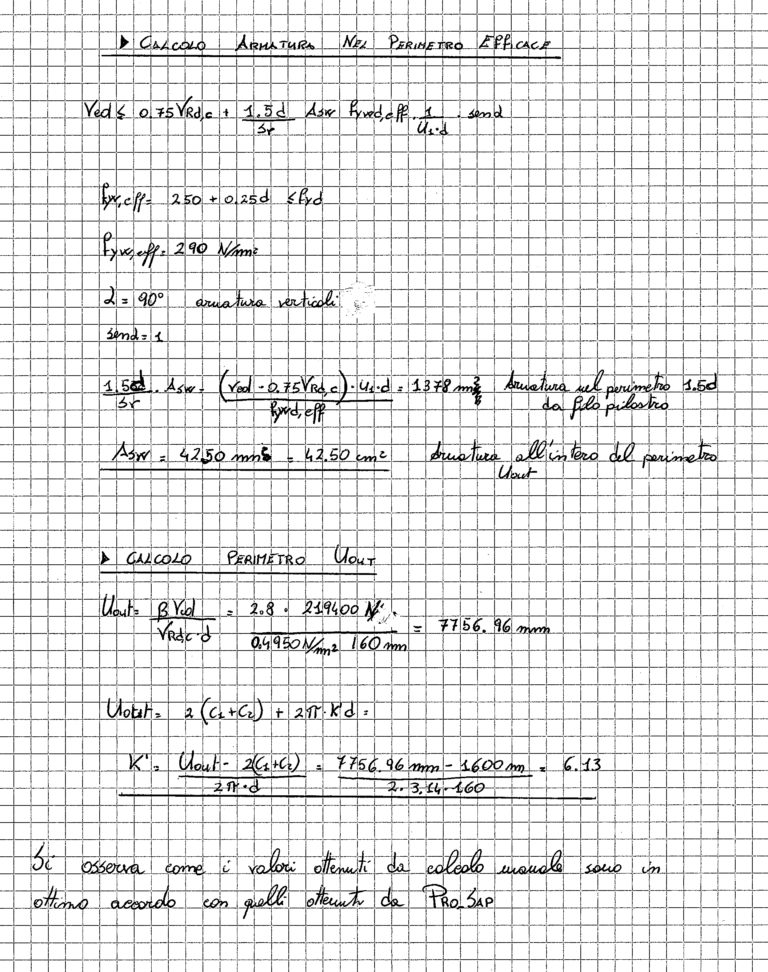 ▶ CALCOLO ARMATURA NEL PERIMETRO EFFICACE
Ved ≤ 0.75 VRd,c + 1.5d/Sr Asw fywd,eff · 1/(U1·d) · senα
fyw,eff = 250 + 0.25d ≤ fyd
fyw,eff = 290 N/mm²
α = 90° armatura verticali
senα = 1
1.5d/Sr · Asw = (ved - 0.75 VRd,c) · U1·d / fywd,eff = 1378 mm² Armatura nel perimetro 1.5d
da filo pilastro
Asw = 4250 mm² = 42.50 cm² Armatura all'intero del perimetro
Uout
▶ CALCOLO PERIMETRO UOUT
Uout = β Ved / (VRd,c · d) = 2.8 · 219400 N / (0.4950 N/mm² 160 mm) = 7756.96 mm
Uout = 2 (C1+C2) + 2π · K'd =
K' = (Uout - 2(C1+C2)) / (2π·d) = (7756.96 mm - 1600 mm) / (2 · 3.14 · 160) = 6.13
Si osserva come i valori ottenuti da calcolo manuale sono in
ottimo accordo con quelli ottenuti da PRO_SAP